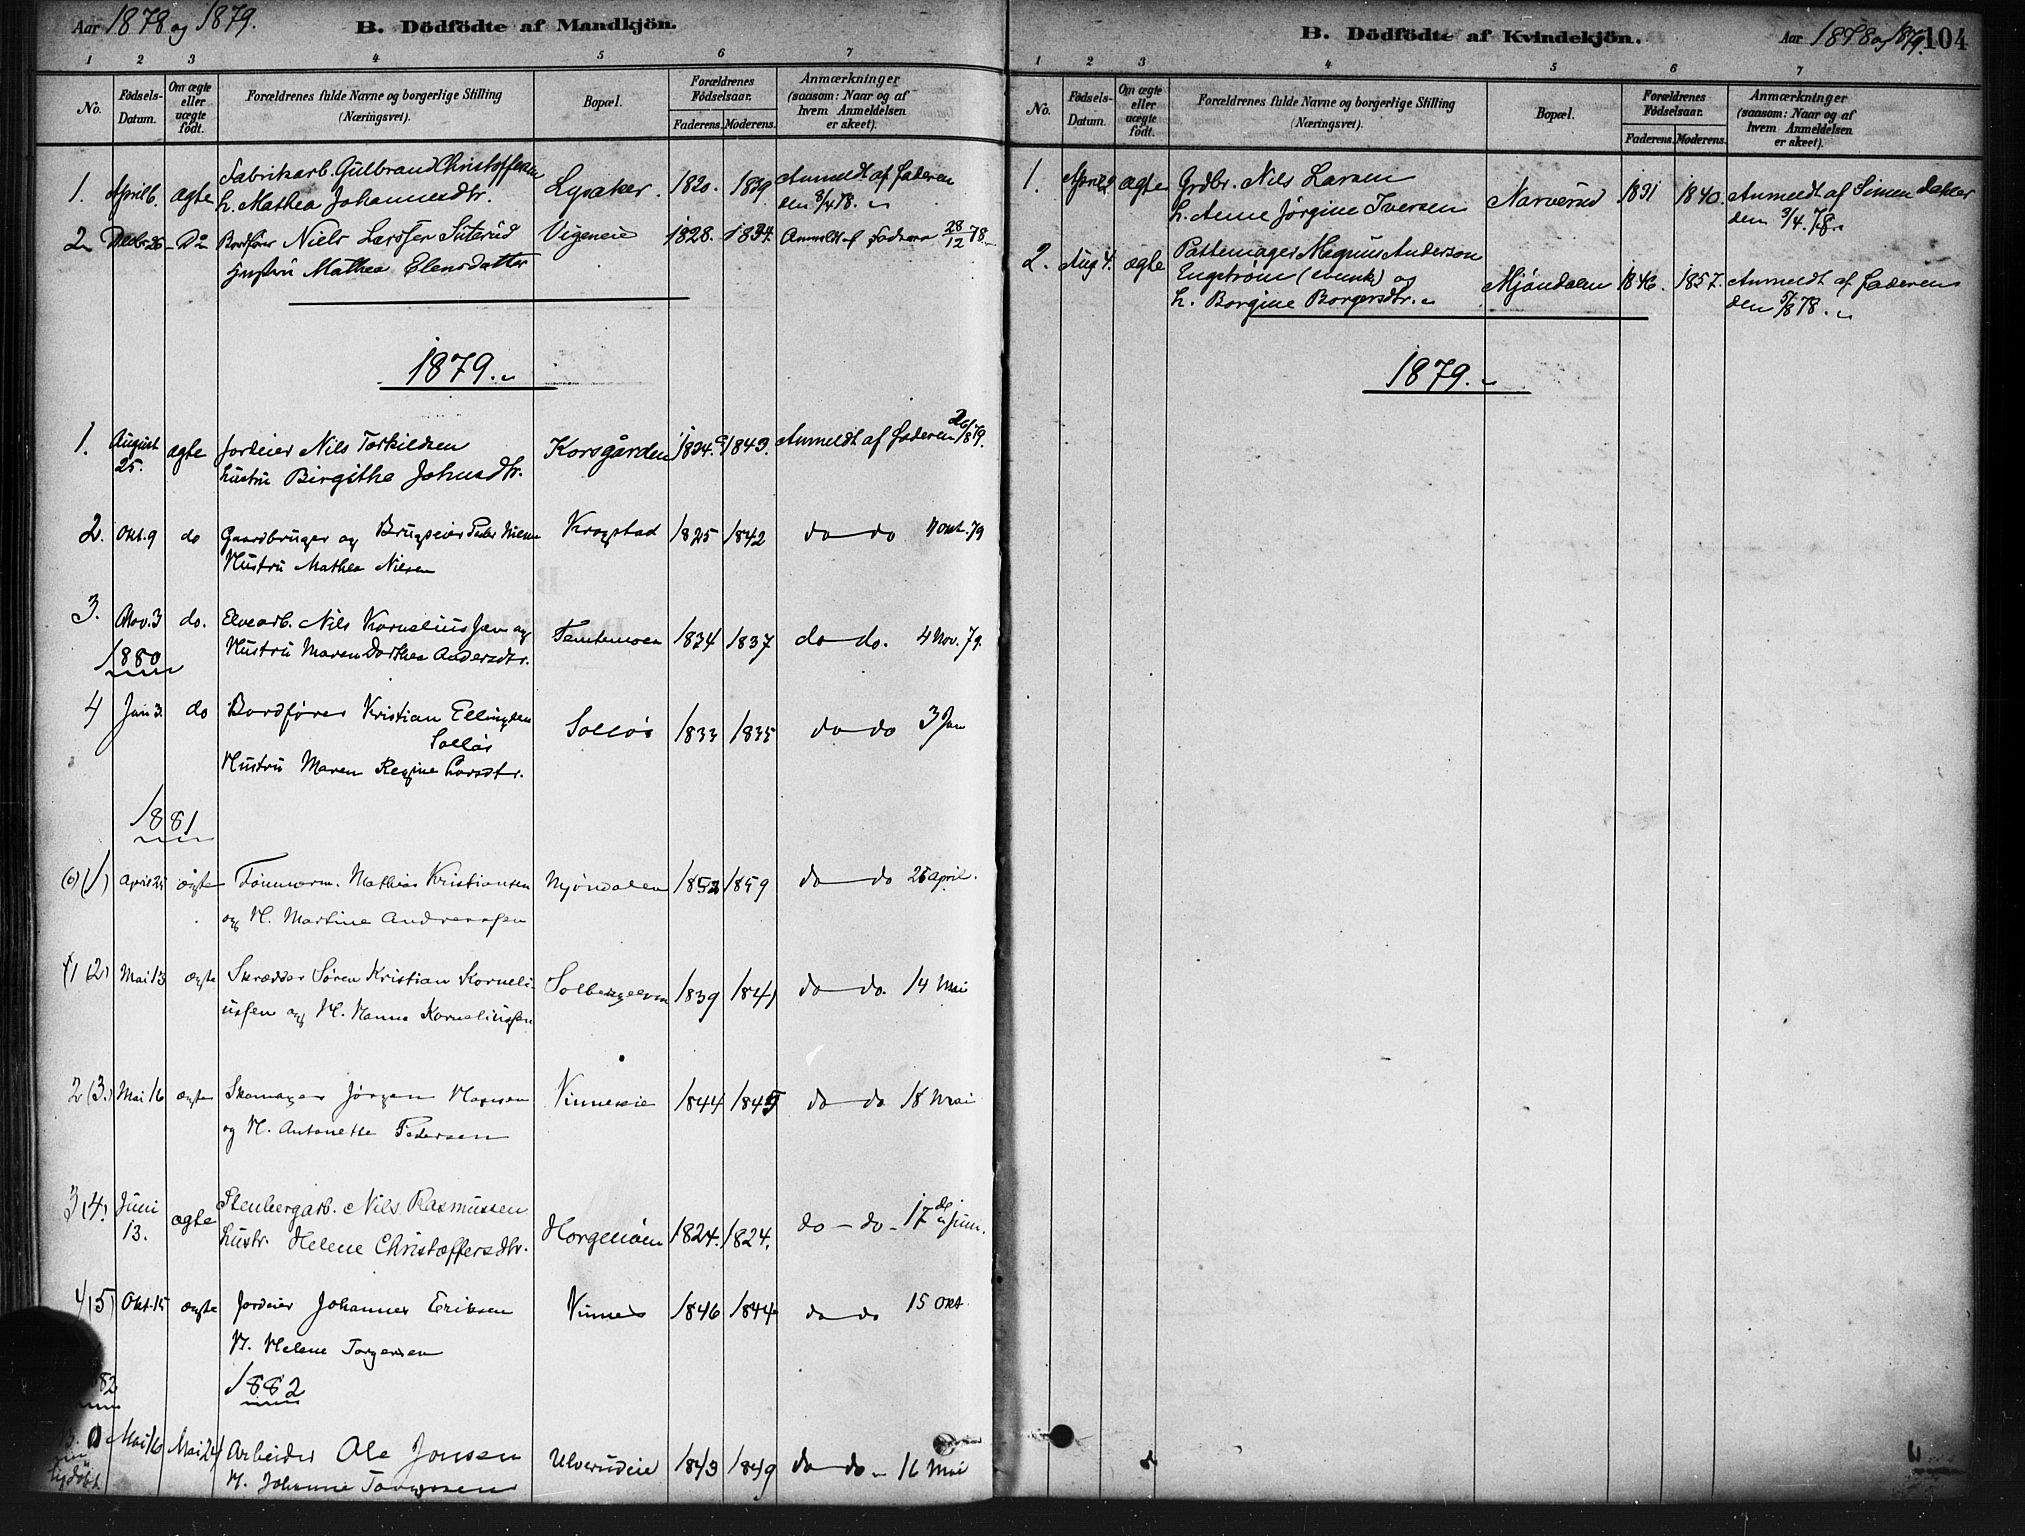 Aar 1878 og 1879.
B. Dödfödte af Mandkjön.
1 2 3 4 5 6 7
No.
Födsels-Datum.
Om ægte eller uægte födt.
Forældrenes fulde Navne og borgerlige Stilling (Næringsvei).
Bopæl.
Forældrenes Födselsaar.
Faderens. Moderens.
Anmærkninger (saasom: Naar og af hvem Anmeldelsen er skeet).
1. April 6. ægte Fabrikarb. Gulbrand Christoffersen Lysaker. 1820. 1839 Anmeldt af Faderen
h. Mathea Johannesdtr. den 8/4 78.
2 Decbr 26 - Do Bordförer Niels Larssen Suterud Vigeneie 1828. 1834. Anmeldt af Faderen 28/12 78.
Hustru Mathea Elensdatter
1879.
1. August 25. ægte Jordeier Nils Torkildsen Korsgården 1834. 1843. Anmeldt af Faderen 26/8 79.
hustru Birgithe Johnsdtr.
2. Okt. 9 do Gaardbruger og Brugseier Peder Nielsen Krogstad 1825 1842 do do 11 Okt. 79
Hustru Mathea Nilsen
3. Nov. 3 do. Elvearb. Nils Kornelius Jen og Temtemoen 1834 1837 do do. 4 Nov. 79.
Hustru Maren Dorthea Andersdtr.
1880
4 Jan 3. do Bordförer Kristian Ellingsen Solløs 1833 1835 do do 3 Jan
Solløs
Hustru Maren Regine Larsdtr.
1881
(0) (1) April 25 ægte Tømmerm. Mathias Kristiansen Mjöndalen 1852 1859 do do 26 April.
og H. Martine Andreassen
(1 (2) Mai 13 ægte Skrædder Søren Kristian Korneli- Solbergelven 1839 1841 do do. 14 Mai
ussen og H. Hanna Korneliussen
2 (3.) Mai 16 ægte Skomager Jörgen Hansen Vinneseie 1844 1845 do do 18 Mai
og H. Antonette Pedersen
3 (4) Juni 13. ægte Stenbergarb. Nils Rasmussen Horgenåsen 1824. 1824. do - do - 17de Juni.
hustr. Helene Christoffersdtr.
4 (5) Okt. 15 ægte Jordeier Johannes Eriksen Vinnes 1846 1844 do do 15 Okt.
H. Helene Torgersen
82
1882
Mai 16 Mai 24 Arbeider Ole Jonsen Ulverudeie 1843 1849 do do - 16 Mai
H. Johanne Torgersen
B. Dödfödte af Kvindekjön.
Aar 1878 og 1879. 104
1 2 3 4 5 6 7
No.
Födsels-Datum.
Om ægte eller uægte födt.
Forældrenes fulde Navne og borgerlige Stilling (Næringsvei).
Bopæl.
Forældrenes Födselsaar.
Faderens. Moderens.
Anmærkninger (saasom: Naar og af hvem Anmeldelsen er skeet).
1. April ægte Grdbr. Nils Larsen Narverud 1831 1840. Anmeldt af Simen Dakker
h. Anne Jörgine Iversen den 3/4. 78.
2. Aug 4. ægte Pottemager Magnus Anderson
Engstrøm (svensk) og Mjöndalen 1846. 1857. Anmeldt af Faderen
h. Borgine Borgersdtr. den 5/8 78.
1879.